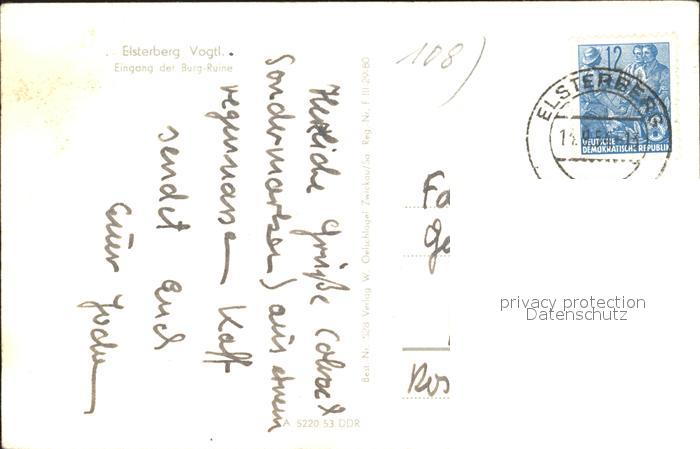 Elsterberg Vogtl.
Eingang der Burg-Ruine
108)
Herzliche Grüße (ohne
Sondermarken) aus einem
regennassen Kaff
sendet Euch
Euer Jochen
Best.-Nr. 528 Verlag W. Oelschlägel Zwickau/Sa. Reg.-Nr. F III-29-80
A 5220 53 DDR
12
DEUTSCHE
DEMOKRATISCHE REPUBLIK
ELSTERBERG
Fa
Ge
Ros
privacy protection
Datenschutz